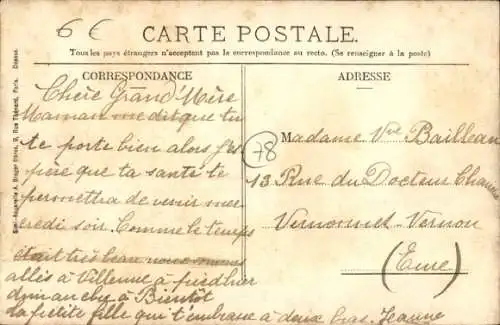 6 €
CARTE POSTALE.
Tous les pays étrangers n'acceptent pas la correspondance au recto. (Se renseigner à la poste)
CORRESPONDANCE
Chère Grand Mère
Maman me dit que tu
te porte bien alors j'es
père que ta santé te
permettra de venir mer
credi soir. Comme le temps
était très beau nous sommes
allés à Villenne à pied hier
dimanche à Bientôt
la petite fille qui t'embrasse à deux bras. Jeanne
ADRESSE
78
Madame Vve Bailleau
13 Rue du Docteur
Vernonnet Vernon
(Eure)
A. Breger frères, 9, Rue Thénard, Paris.